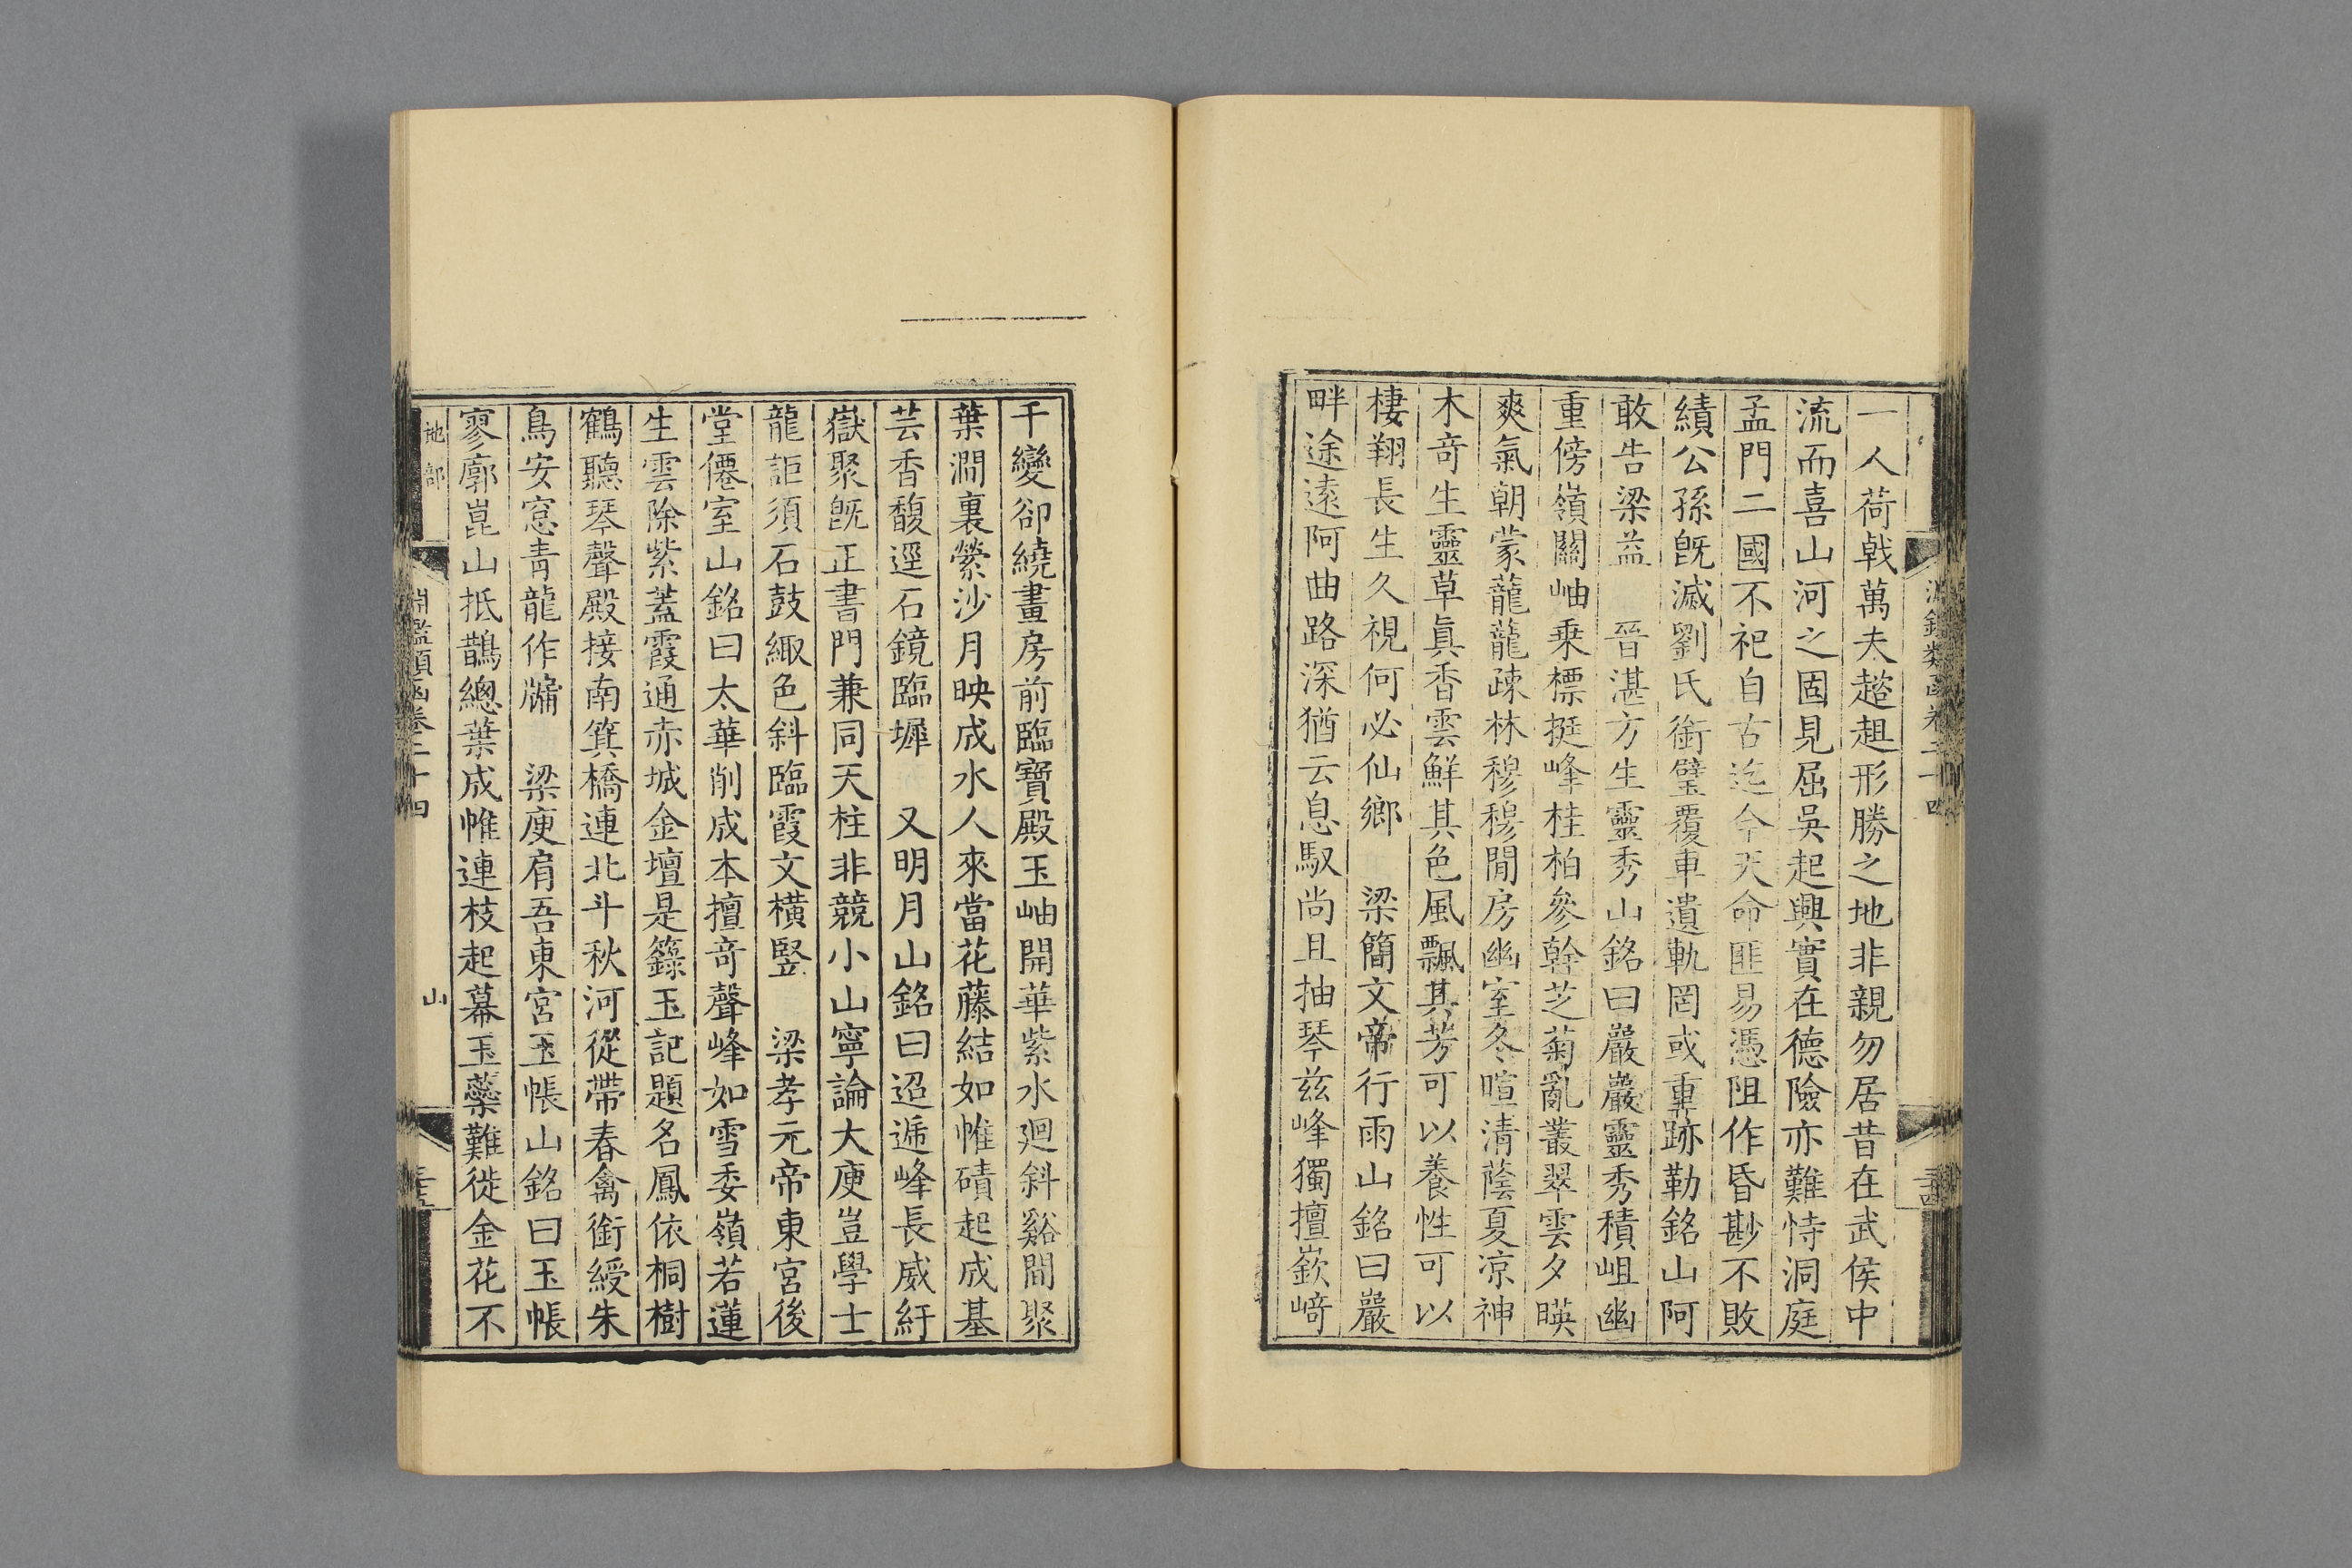 淵鑑類函卷二十四
三十四
一人荷戟萬夫趑趄形勝之地非親勿居昔在武侯中
流而喜山河之固見屈吳起興實在德險亦難恃洞庭
孟門二國不祀自古迄今天命匪易憑阻作昏尠不敗
績公孫旣滅劉氏銜璧覆車遺軌罔或重跡勒銘山阿
敢告梁益　晉湛方生靈秀山銘曰巖巖靈秀積岨幽
重傍嶺關岫乗標挺峰桂柏參幹芝菊亂叢翠雲夕暎
爽氣朝蒙蘢蘢疎林穆穆閒房幽室冬暄清蔭夏凉神
木奇生靈草眞香雲鮮其色風飄其芳可以養性可以
棲翔長生久視何必仙鄉　梁簡文帝行雨山銘曰巖
畔途遠阿曲路深猶云息馭尚且抽琴兹峰獨擅嶔﨑
千變卻繞畫房前臨寶殿玉岫開華紫水廻斜谿間聚
葉澗裏縈沙月映成水人來當花藤結如帷磧起成基
芸香馥逕石鏡臨墀　又明月山銘曰迢遞峰長威紆
嶽聚旣正書門兼同天柱非競小山寧論大庾豈學士
龍詎須石鼓緅色斜臨霞文橫竪　梁孝元帝東宮後
堂僊室山銘曰太華削成本擅奇聲峰如雪委嶺若蓮
生雲除紫蓋霞通赤城金壇是籙玉記題名鳳依桐樹
鶴聽琴聲殿接南箕橋連北斗秋河從帶春禽銜綬朱
鳥安窓青龍作牖　梁庾肩吾東宮玉帳山銘曰玉帳
寥廓崑山抵鵲總葉成帷連枝起幕玉蘂難徙金花不
地部
淵鑑類函卷二十四
山
三十五